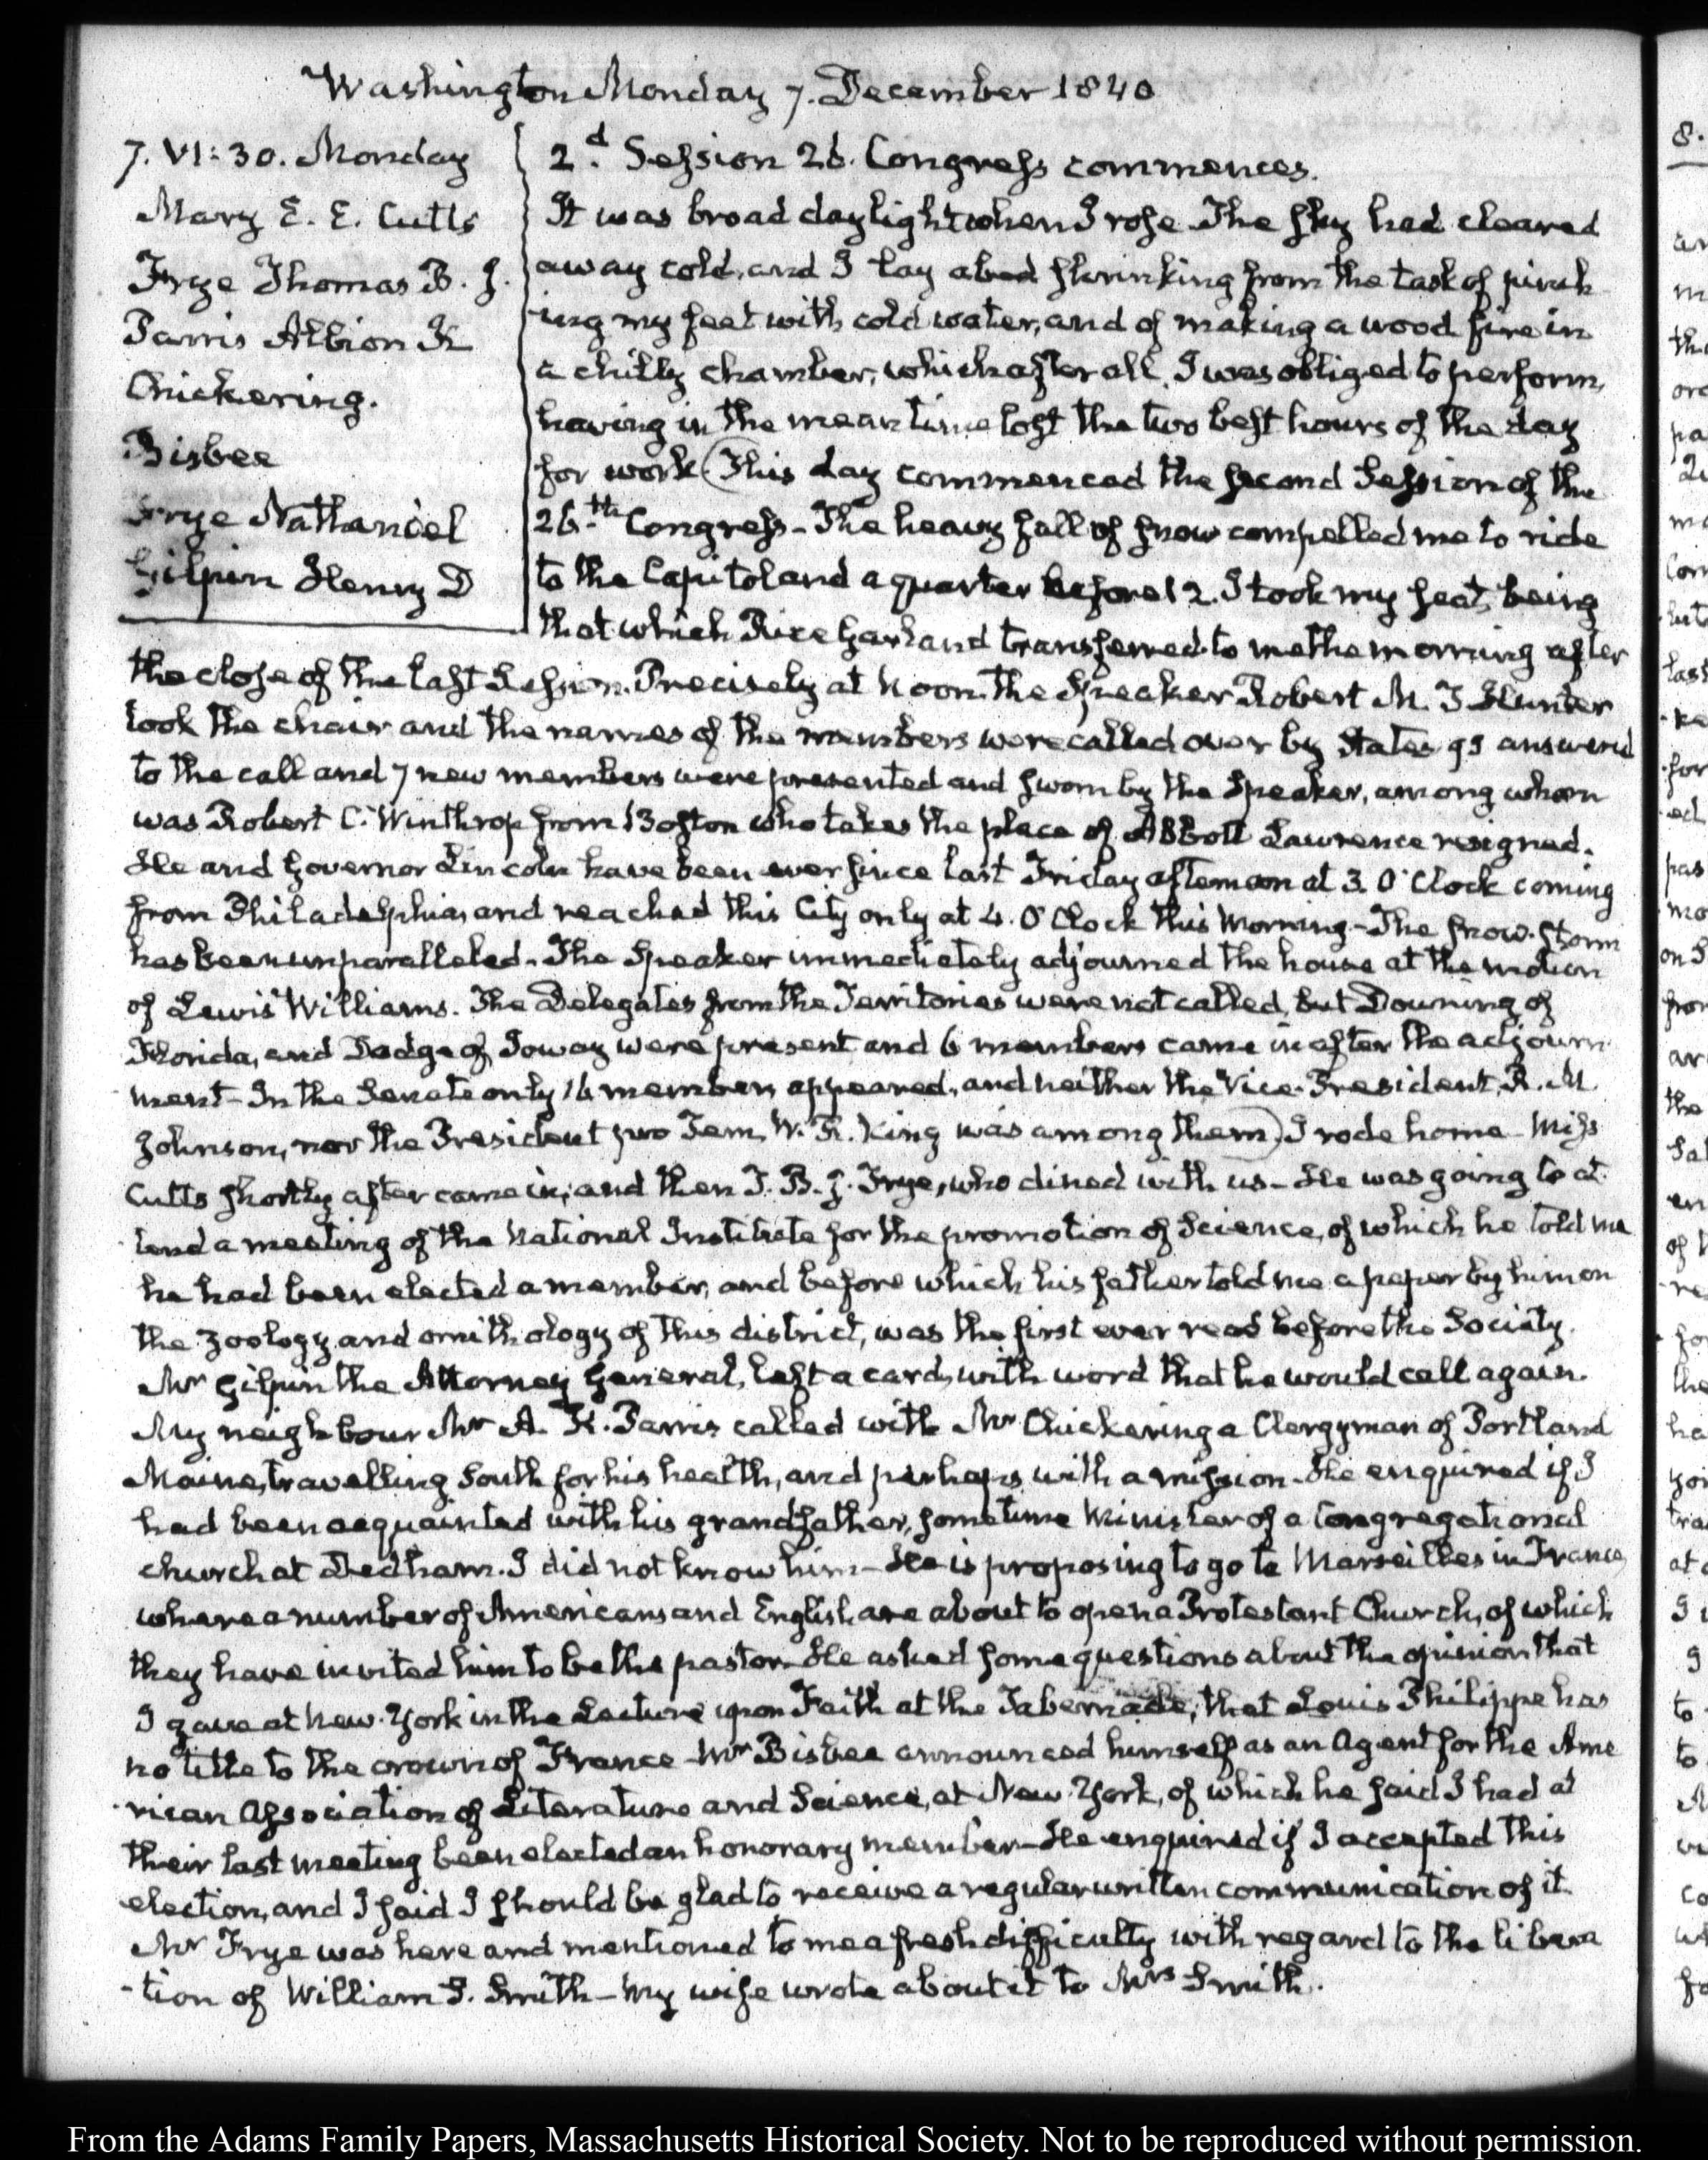 Washington Monday 7. December 1840
7. VI:30. Monday
Mary E. E. Cutts
Frye Thomas B. J.
Parris Albion K
Chickering.
Bisbee
Frye Nathaniel
Gilpin Henry D
2d. Session 26. Congress commences.
It was broad daylight when I rose. The sky had cleared
away cold, and I lay abed shrinking from the task of pinch
-ing my feet with cold water, and of making a wood fire in
a chilly chamber, which after all, I was obliged to perform,
having in the mean time lost the two best hours of the day
for work (This day commenced the second Session of the
26.th Congress - The heavy fall of snow compelled me to ride
to the Capitol and a quarter before 12. I took my seat, being
that which Rice Garland transferred to me the morning after
the close of the last Session. Precisely at Noon the Speaker Robert M. T Hunter
took the chair and the names of the members were called over by States 99 answered
to the call and 7 new members were presented and sworn by the Speaker, among whom
was Robert C. Winthrop from Boston who takes the place of Abbott Lawrence resigned.
He and Governor Lincoln have been ever since last Friday afternoon at 3. O'Clock coming
from Philadelphia, and reached this City only at 4. O'Clock this Morning - The snow-storm
has been unparalleled - The Speaker immediately adjourned the house at the motion
of Lewis Williams. The Delegates from the Territories were not called, but Downing of
Florida, and Dodge of Ioway were present and 6 members came in after the adjourn-
ment - In the Senate only 16 members appeared, and neither the Vice-President, R. M
Johnson, nor the President pro Tem, W. R. King was among them) I rode home - Miss
Cutts shortly after came in; and then T. B. J. Frye, who dined with us - He was going to at-
-tend a meeting of the National Institute for the promotion of Science, of which he told me
he had been elected a member, and before which his father told me a paper by him on
the zoology and ornithology of this district, was the first ever read before the Society.
Mr Gilpin the Attorney General, left a card, with word that he would call again.
My neighbour Mr A. K. Parris called with Mr Chickering a Clergyman of Portland
Maine, travelling South for his health, and perhaps with a mission - He enquired if I
had been acquainted with his grandfather, sometime Minister of a Congregational
church at Dedham. I did not know him - He is proposing to go to Marseilles in France,
where a number of Americans and English are about to open a Protestant Church, of which
they have invited him to be the pastor. He asked some questions about the opinion that
I gave at New-York in the Lecture upon Faith at the Tabernacle, that Louis Philippe has
no title to the crown of France - Mr Bisbee announced himself as an Agent for the Ame
-rican Association of Literature and Science, at New-York, of which he said I had at
their last meeting been elected an honorary member - He enquired if I accepted this
election, and I said I should be glad to receive a regular written communication of it
Mr Frye was here and mentioned to me a fresh difficulty with regard to the libera
-tion of William S. Smith - My wife wrote about it to Mrs Smith.
From the Adams Family Papers, Massachusetts Historical Society. Not to be reproduced without permission.